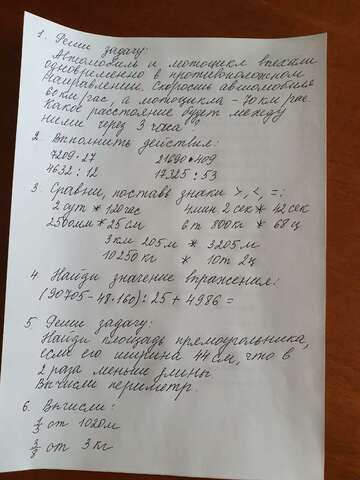 1. Реши задачу:
Автомобиль и мотоцикл выехали
одновременно в противоположном
направлении. Скорость автомобиля
60 км/час, а мотоцикла – 70 км/час.
Какое расстояние будет между
ними через 3 часа?
2. Выполнить действия:
7209 · 27 21690 · 409
4632 : 12 17325 : 53
3. Сравни, поставь знаки >, <, =:
2 сут * 120 час 4 мин 2 сек * 42 сек
2500мм * 25 см 6 т 800 кг * 68 ц
3 км 205 м * 3205 м
10250 кг * 10т 2ц
4. Найди значение выражения:
(90705 - 48 · 160) : 25 + 4986 =
5. Реши задачу:
Найди площадь прямоугольника,
если его ширина 44 см, что в
2 раза меньше длины.
Вычисли периметр.
6. Вычисли:
от 1020м
3/8 от 3 кг